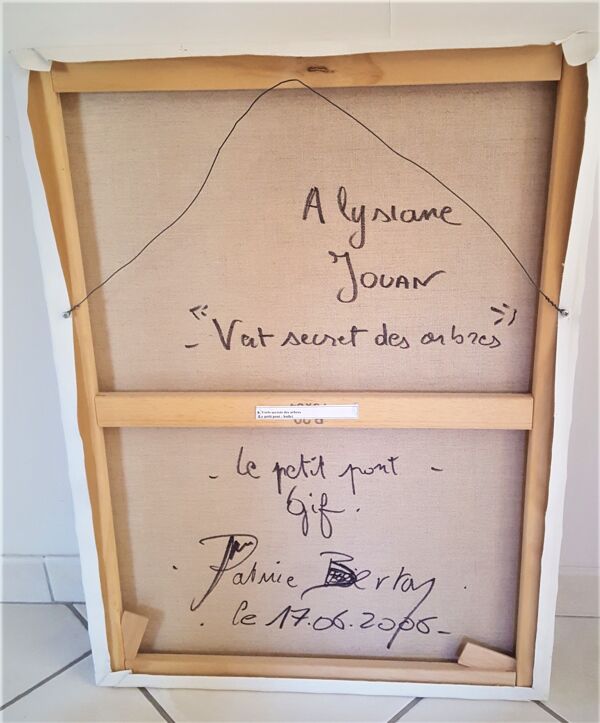 Alysiane
Jouan
- « Vert secret des arbres »
- Le petit pont -
Gif.
. le 17.06.2006 -